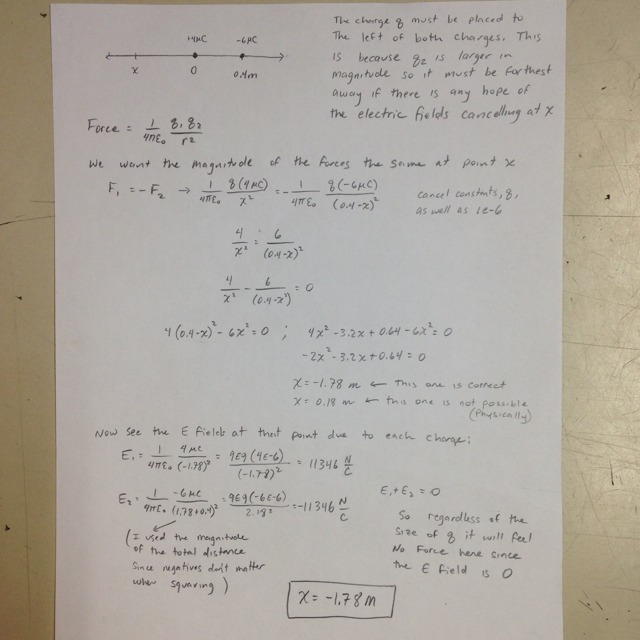 +4μC -6μC
x 0 0.4m
The charge q must be placed to
the left of both charges. This
is because q₂ is larger in
magnitude so it must be farthest
away if there is any hope of
the electric fields cancelling at x
Force = 1/4πε₀ q₁q₂/r²
We want the magnitude of the forces the same at point x
F₁ = -F₂ → 1/4πε₀ q(4μC)/x² = - 1/4πε₀ q(-6μC)/(0.4-x)²
cancel constants, q,
as well as 1e-6
4/x² = 6/(0.4-x)²
4/x² - 6/(0.4-x²) = 0
4(0.4-x)² - 6x² = 0 ; 4x² - 3.2x + 0.64 - 6x² = 0
-2x² - 3.2x + 0.64 = 0
x = -1.78 m ← This one is correct
x = 0.18 m ← this one is not possible
(Physically)
Now see the E fields at that point due to each charge:
E₁ = 1/4πε₀ 4μC/(-1.78)² = 9E9(4E-6)/(-1.78)² = 11346 N/C
E₂ = 1/4πε₀ -6μC/(1.78+0.4)² = 9E9(-6E-6)/2.18² = -11346 N/C
(I used the magnitude
of the total distance
since negatives don't matter
when squaring)
E₁+E₂ = 0
So regardless of the
size of q it will feel
No Force here since
the E field is 0
x = -1.78 m